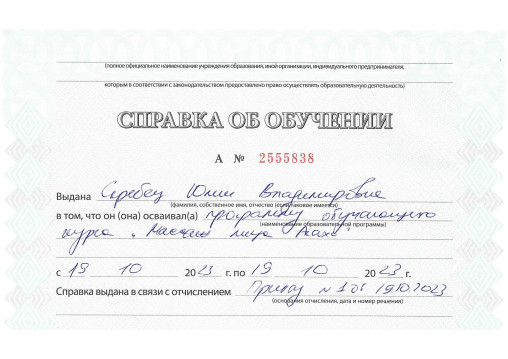 (полное официальное наименование учреждения образования, иной организации, индивидуального предпринимателя,
которым в соответствии с законодательством предоставлено право осуществлять образовательную деятельность)
СПРАВКА ОБ ОБУЧЕНИИ
А № 2555838
Выдана Юлии Владимировне
(фамилия, собственное имя, отчество (если таковое имеется)
в том, что он (она) осваивал(а) программу обучающего
(наименование образовательной программы)
курса "Массаж лица
с 19 10 2023 г. по 19 10 2023 г.
Справка выдана в связи с отчислением Приказ 19.10.2023
(основания отчисления, дата и номер решения)